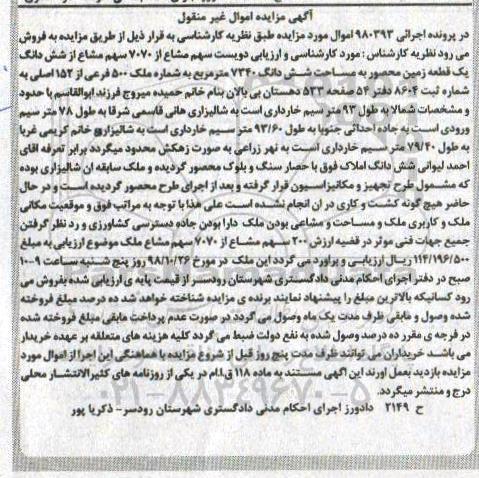 آگهی مزایده اموال غیر منقول
در پرونده اجرائی ۹۸۰۳۹۳ اموال مورد مزایده طبق نظریه کارشناسی به قرار ذیل از طریق مزایده به فروش
می رود نظریه کارشناس : مورد کارشناسی و ارزیابی دویست سهم مشاع از ۷۰۷۰ سهم مشاع از شش دانگ
یک قطعه زمین محصور به مساحت شش دانگ ۷۳۴۰ مترمربع به شماره ملک ۵۰۰ فرعی از ۱۵۲ اصلی به
شماره ثبت ۸۶۰۴ دفتر ۵۴ صفحه ۵۳۳ دهستان بی بالان بنام خانم حمیده میروج فرزند ابوالقاسم با حدود
و مشخصات شمالا به طول ۹۳ متر سیم خارداری است به شالیزاری هانی قاسمی شرقا به طول ۷۸ متر سیم
ورودی است به جاده احداثی جنوبا به طول ۹۳/۶۰ متر سیم خارداری است به شالیزاری خانم کریمی غربا
به طول ۷۹/۴۰ متر سیم خارداری است به نهر زراعی به صورت زهکش محدود میگردد برابر تعرفه اقای
احمد لیوانی شش دانگ املاک فوق با حصار سنگ و بلوک محصور گردیده و ملک سابقه ان شالیزاری بوده
که مشمول طرح تجهیز و مکانیزاسیون قرار گرفته و بعد از اجرای طرح محصور گردیده است و در حال
حاضر هیچ گونه کشت و کاری در ان انجام نشده است علی هذا با توجه به مراتب فوق و موقعیت مکانی
ملک و کاربری ملک و مساحت و مشاعی بودن ملک دارا بودن جاده دسترسی کشاورزی و رد نظر گرفتن
جمیع جهات فنی موثر در قضیه ارزش ۲۰۰ سهم مشاع از ۷۰۷۰ سهم مشاع ملک موضوع ارزیابی به مبلغ
۱۱۴/۱۹۶/۵۰۰ ریال ارزیابی و براورد می گردد این ملک در مورخ ۹۸/۱۰/۲۶ روز پنج شنبه ساعت ۹-۱۰
صبح در دفتر اجرای احکام مدنی دادگستری شهرستان رودسر از قیمت پایه ی ارزیابی شده بفروش می
رود کسانیکه بالاترین مبلغ را پیشنهاد نمایند برنده ی مزایده شناخته خواهد شد ده درصد مبلغ فروخته
شده وصول و مابقی ظرف مدت یک ماه وصول می گردد در صورت عدم پرداخت مابقی مبلغ فروخته شده
در فرجه ی مقرر ده درصد وصول شده به نفع دولت ضبط می گردد کلیه هزینه های متعلقه بر عهده خریدار
می باشد خریداران می توانند ظرف مدت پنج روز قبل از شروع مزایده با هماهنگی این اجرا از اموال مورد
مزایده بازدید بعمل اورند این اگهی مستند به ماده ۱۱۸ ق.ا.م در یکی از روزنامه های کثیرالانتشار محلی
درج و منتشر میگردد.
ح ۲۱۴۹ دادورز اجرای احکام مدنی دادگستری شهرستان رودسر- ذکریا پور
۰۲۱-۸۸۳۴۹۶۷۰-۵